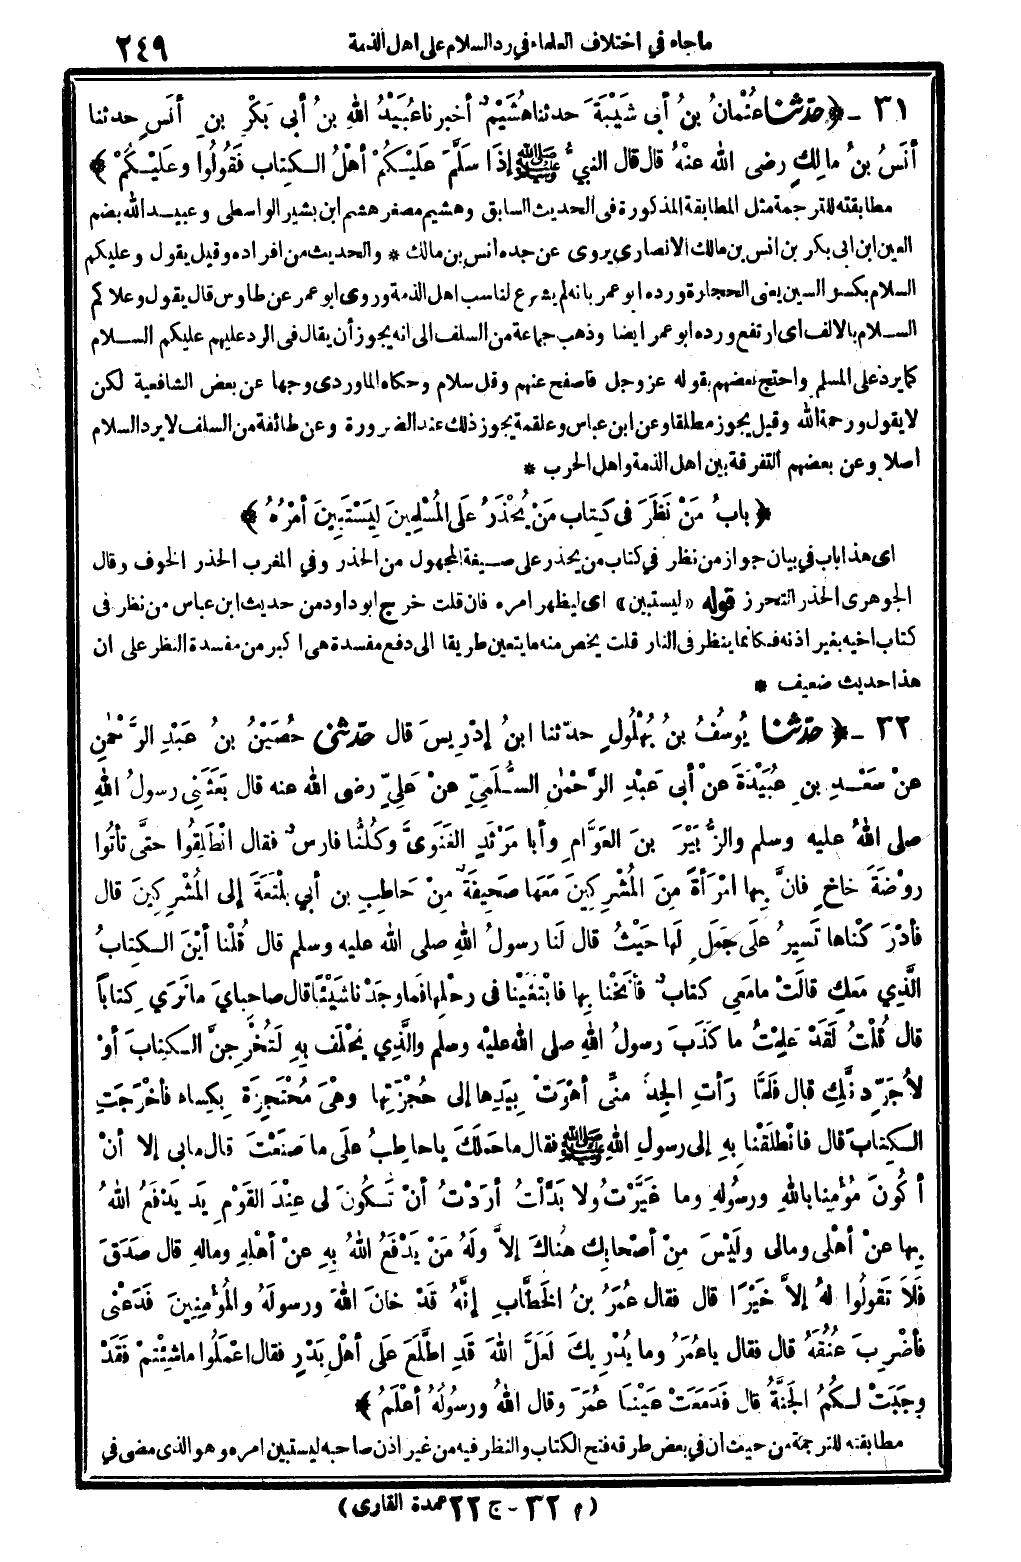 ماجاء في اختلاف العلماء في رد السلام على اهل الذمة ٢٤٩
٣١ - ﴿ حَدَّثَنا عُثْمانُ بنُ أبى شَيْبَةَ حدثنا هُشَيْمٌ أخبرنا عُبَيْدُ اللهِ بنُ أبى بَكْرِ بنِ أنَسٍ حدثنا
أنَسُ بنُ مالِكٍ رضى الله عنْهُ قال قال النبىُّ ﷺ إذَا سَلَّمَ عَلَيْكُمْ أهْلُ الكِتابِ فَقُولُوا وعَلَيْكُمْ ﴾
مطابقته للترجمة مثل المطابقة المذكورة فى الحديث السابق وهشيم مصغر هشم ابن بشير الواسطى وعبيد الله بضم
العين ابن ابى بكر بن انس بن مالك الانصارى يروى عن جده انس بن مالك * والحديث من افراده وقيل يقول وعليكم
السلام بكسر السين يعنى الحجارة ورده ابو عمر بانه لم يشرع لنا سب اهل الذمة وروى ابو عمر عن طاوس قال يقول وعلاكم
السلام بالالف اى ارتفع ورده ابو عمر ايضا وذهب جماعة من السلف الى انه يجوز أن يقال فى الرد عليهم عليكم السلام
كما يرد على المسلم واحتج بعضهم بقوله عز وجل فاصفح عنهم وقل سلام وحكاه الماوردى وجها عن بعض الشافعية لكن
لا يقول ورحمة الله وقيل يجوز مطلقا وعن ابن عباس وعلقمة يجوز ذلك عند الضرورة وعن طائفة من السلف لا يرد السلام
اصلا وعن بعضهم التفرقة بين اهل الذمة واهل الحرب *
﴿ بابُ مَنْ نَظَرَ فى كِتابِ مَنْ يُحْذَرُ عَلَى المُسْلِمِينَ لِيَسْتَبِينَ أمْرُهُ ﴾
اى هذا باب في بيان جواز من نظر في كتاب من يحذر على صيغة المجهول من الحذر وفي المغرب الحذر الخوف وقال
الجوهرى الحذر التحرز قوله «ليستبين» اى ليظهر امره فان قلت خرج ابو داود من حديث ابن عباس من نظر فى
كتاب اخيه بغير اذنه فكانما ينظر فى النار قلت يخص منه ما يتعين طريقا الى دفع مفسدة هى اكبر من مفسدة النظر على ان
هذا حديث ضعيف *
٣٢ - ﴿ حَدَّثَنا يُوسُفُ بنُ بُهْلُولٍ حدّثنا ابنُ إدْرِيسَ قال حَدّثنى حُصَيْنُ بنُ عَبْدِ الرَّحْمٰنِ
عنْ سَعْدِ بنِ عُبَيْدَةَ عنْ أبى عَبْدِ الرَّحْمٰنِ السُّلَمِىِّ عنْ عَلِىٍّ رضى الله عنه قال بَعَثَنِى رسولُ اللهِ
صلى اللهُ عليه وسلم والزُّبَيْرَ بنَ العَوَّامِ وأبا مَرْثَدٍ الغَنَوِىَّ وَكُلُّنا فارِسٌ فقال انْطَلِقُوا حتَّى تَأتُوا
روْضَةَ خاخٍ فانَّ بِها امْرَأةً مِنَ المُشْرِكِينَ مَعَها صَحِيفَةٌ مِنْ حَاطِبِ بن أبي بلْتَعَةَ إلى المُشْرِكِينَ قال
فأدْرَكْناها تَسِيرُ على جَمَلٍ لَها حَيْثُ قال لَنا رسولُ اللهِ صلى الله عليه وسلم قال قُلْنا أيْنَ الكِتابُ
الَّذِي مَعَكِ قالَتْ ما مَعِي كتابٌ فأنَخْنا بِها فابْتَغَيْنا فى رحْلِها فَما وجَدْنا شَيْئًا قال صاحِبايَ ما نَرَي كِتابًا
قال قُلْتُ لَقَدْ عَلِمْتُ ما كَذَبَ رسولُ اللهِ صلى الله عليْه وسلم والَّذِي يُحْلَفُ بِهِ لَتُخْرِجِنَّ الكِتابَ أوْ
لأُجَرِّدَنَّكِ قال فَلَمَّا رَأتِ الجِدَّ مِنِّى أهْوَتْ بِيَدِها إلى حُجْزَتِها وهْىَ مُحْتَجِزَةٌ بِكِساء فأخْرَجَتِ
الكِتابَ قال فانْطَلَقْنا بِهِ إلى رسولِ اللهِ ﷺ فقال ما حَمَلَكَ يا حاطِبُ على ما صَنَعْتَ قال ما بى إلا أنْ
أكُونَ مُؤْمِنا باللهِ ورسُولِهِ وما غَيَّرْتُ ولا بَدَّلْتُ أردْتُ أنْ تَكُونَ لى عِنْدَ القَوْمِ يَد يَدْفَعُ اللهُ
بِها عنْ أهْلى ومالى ولَيْسَ مِنْ أصْحابِكَ هُناكَ إلاَّ ولَهُ مَنْ يَدْفَعُ اللهُ بِهِ عنْ أهْلِهِ ومالِهِ قال صَدَقَ
فَلاَ تَقُولُوا لهُ إلاَّ خَيْرًا قال فقال عُمَرُ بنُ الخَطَّابِ إنَّهُ قَدْ خانَ اللهَ ورسولَهُ والمُؤْمِنِينَ فَدَعْنى
فأضْرِبَ عُنُقَهُ قال فقال ياعُمَرُ وما يُدْرِيكَ لَعَلَّ اللهَ قَدِ اطَّلَعَ على أهْلِ بَدْرٍ فقال اعْمَلُوا ما شِئْتُمْ فَقَدْ
وجَبَتْ لَكُمُ الجَنَّةُ قال فَدَمَعَتْ عَيْنا عُمَرَ وقال اللهُ ورسُولُهُ أعْلَمُ ﴾
مطابقته للترجمة من حيث ان في بعض طرقه فتح الكتاب والنظر فيه من غير اذن صاحبه ليستبين امره وهو الذى مضى في
(م ٣٢ - ج ٢٢ عمدة القارى)